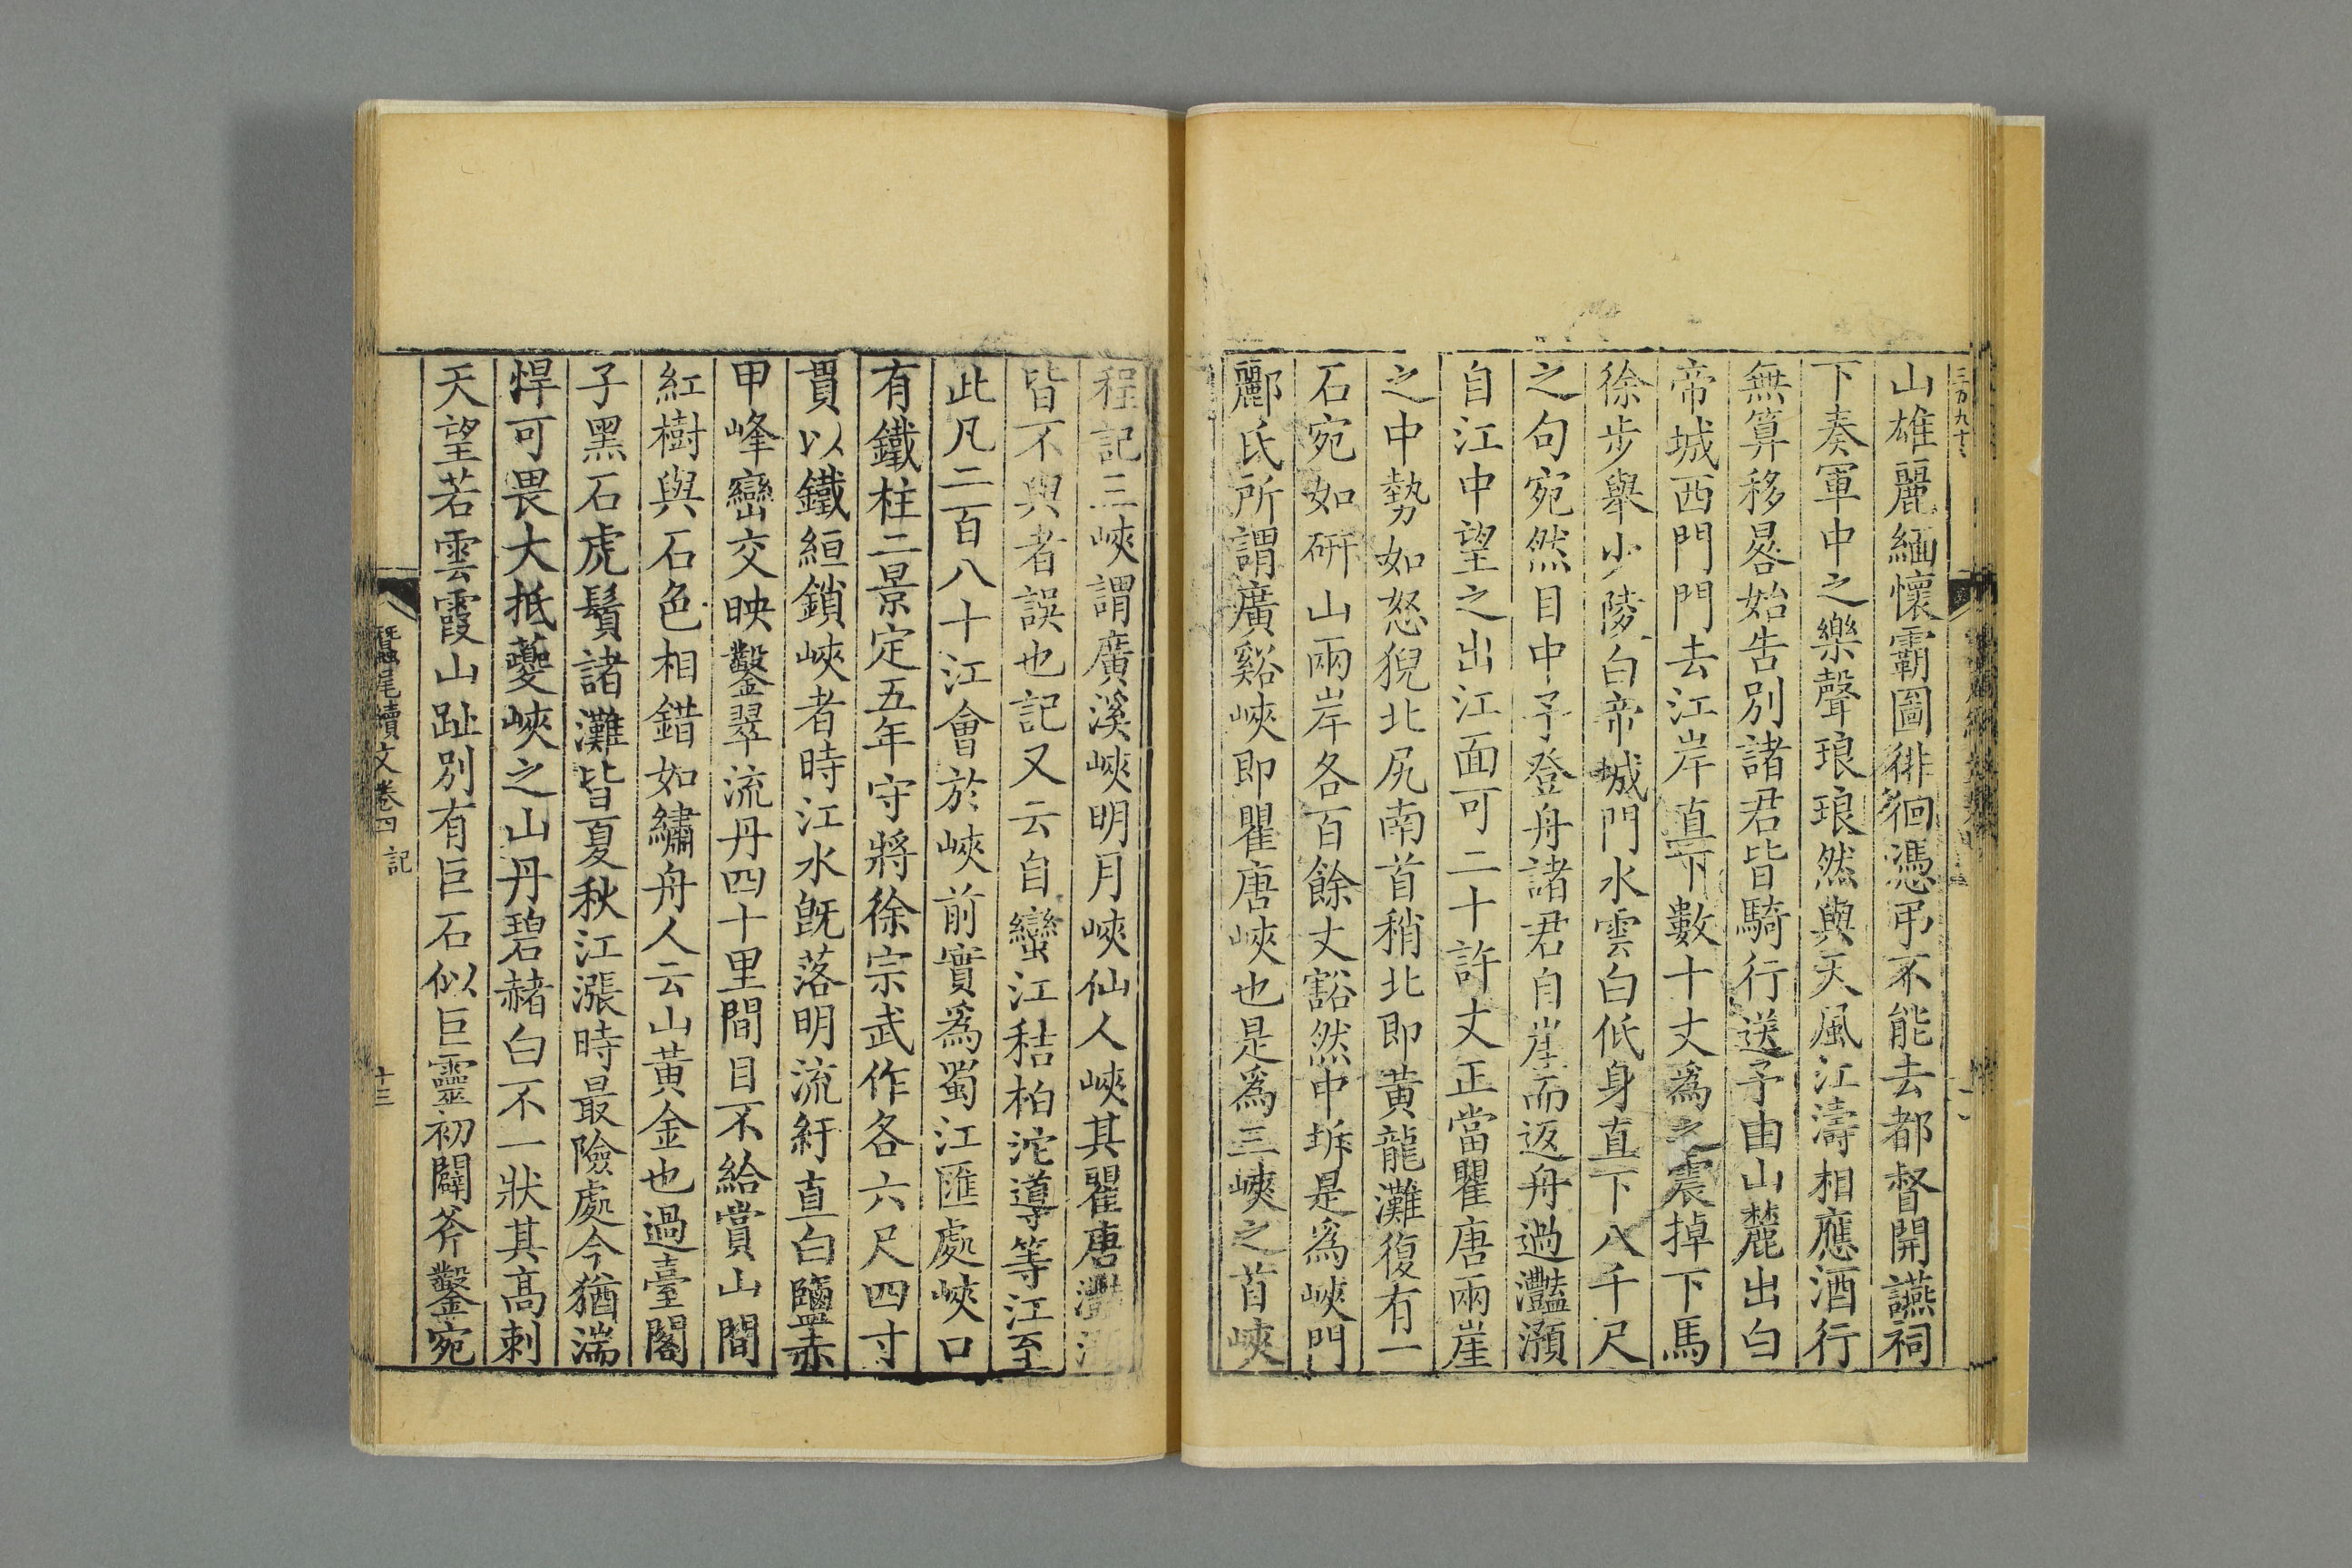 山雄麗緬懷霸圖徘徊憑弔不能去都督開讌祠
下奏軍中之樂聲琅琅然與天風江濤相應酒行
無算移晷始告別諸君皆騎行送予由山麓出白
帝城西門門去江岸直下數十丈爲之震掉下馬
徐步舉少陵白帝城門水雲白低身直下八千尺
之句宛然目中予登舟諸君自崖而返舟過灩澦
自江中望之出江面可二十許丈正當瞿唐兩崖
之中勢如怒猊北尻南首稍北即黄龍灘復有一
石宛如硏山兩岸各百餘丈豁然中坼是爲峽門
酈氏所謂廣谿峽即瞿唐峽也是爲三峽之首峽
程記三峽謂廣溪峽明月峽仙人峽其瞿唐灩澦
皆不與者誤也記又云自蠻江秸柏沱導等江至
此凡二百八十江會於峽前實爲蜀江匯處峽口
有鐵柱二景定五年守將徐宗武作各六尺四寸
貫以鐵絙鎖峽者時江水旣落明流紆直白鹽赤
甲峰巒交映鑿翠流丹四十里間目不給賞山間
紅樹與石色相錯如繡舟人云山黃金也過臺閣
子黑石虎鬚諸灘皆夏秋江漲時最險處今猶湍
悍可畏大抵夔峽之山丹碧赭白不一狀其高刺
天望若雲霞山趾別有巨石似巨靈初闢斧鑿宛
蠶尾續文卷四 記
十三